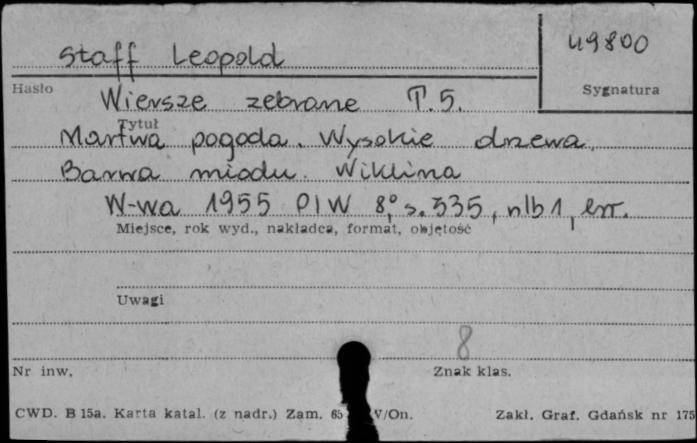 Staff Leopold
49800
Hasło
Sygnatura
Wiersze zebrane T. 5.
Tytuł
Martwa pogoda. Wysokie drzewa.
Barwa miodu. Wiklina
W-wa 1955 PIW 8,° s. 335, nlb 1, err.
Miejsce, rok wyd., nakładca, format, objętość
Uwagi
8
Nr inw.
Znak klas.
CWD. B 15a. Karta katal. (z nadr.) Zam. 65 V/On.
Zakł. Graf. Gdańsk nr 175